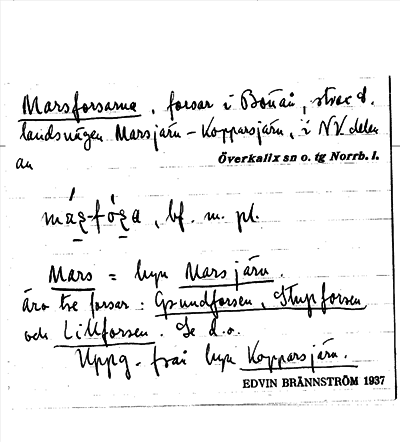 Marsforsarna, forsar i Bönån, strax s.
landsvägen Marsjärv – Kopparsjärv, i NV delen
av Överkalix sn o. tg Norrb. l.
bf. m. pl.
Mars = byn Marsjärv.
Äro tre forsar: Grundforsen, Stupforsen
och Lillforsen. Se d.o.
Uppg. från byn Kopparsjärv.
EDVIN BRÄNNSTRÖM 1937